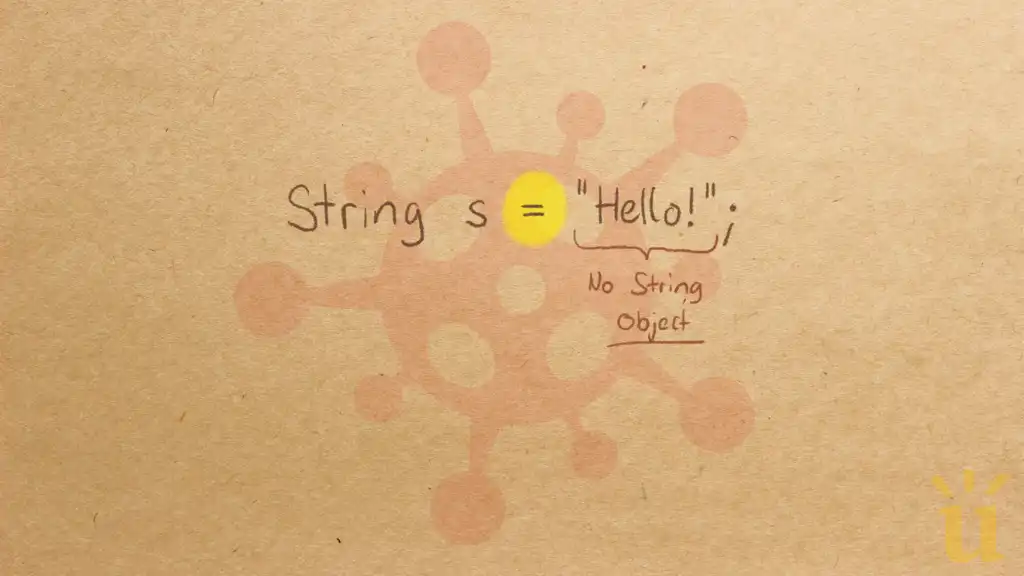 String s = "Hello!";
No String
Object
u